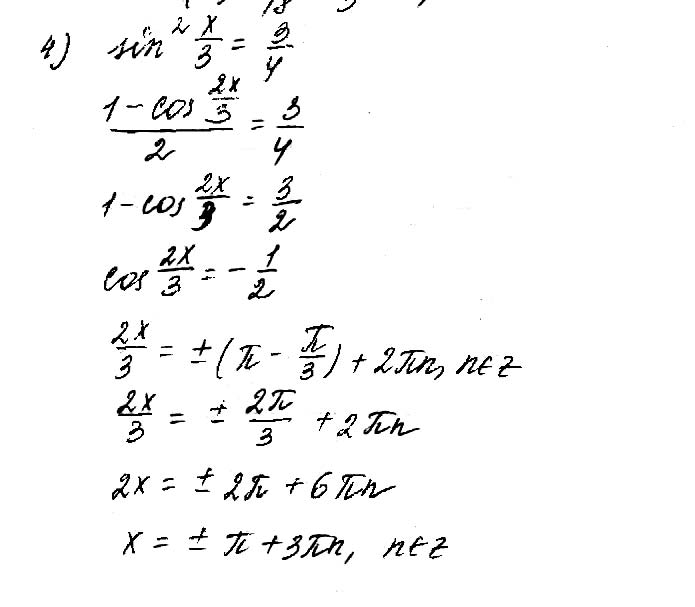 4) sin² x/3 = 3/4
(1 - cos 2x/3)/2 = 3/4
1 - cos 2x/3 = 3/2
cos 2x/3 = - 1/2
2x/3 = ± (π - π/3) + 2πn, n ∈ z
2x/3 = ± 2π/3 + 2πn
2x = ± 2π + 6πn
x = ± π + 3πn, n ∈ z